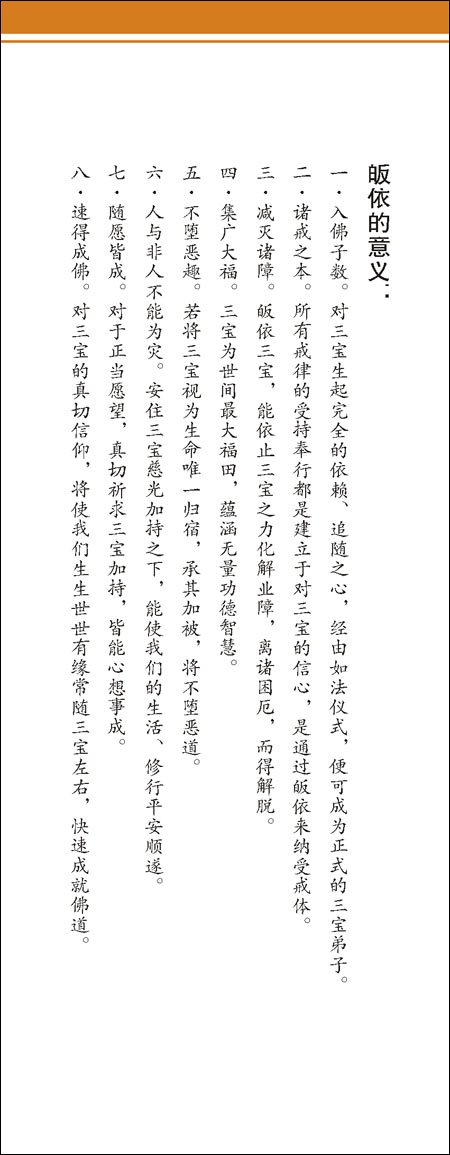 皈依的意义：
一·入佛子数。对三宝生起完全的依赖、追随之心，经由如法仪式，便可成为正式的三宝弟子。
二·诸戒之本。所有戒律的受持奉行都是建立于对三宝的信心，是通过皈依来纳受戒体。
三·减灭诸障。皈依三宝，能依止三宝之力化解业障，离诸困厄，而得解脱。
四·集广大福。三宝为世间最大福田，蕴涵无量功德智慧。
五·不堕恶趣。若将三宝视为生命唯一归宿，承其加被，将不堕恶道。
六·人与非人不能为灾。安住三宝慈光加持之下，能使我们的生活、修行平安顺遂。
七·随愿皆成。对于正当愿望，真切祈求三宝加持，皆能心想事成。
八·速得成佛。对三宝的真切信仰，将使我们生生世世有缘常随三宝左右，快速成就佛道。